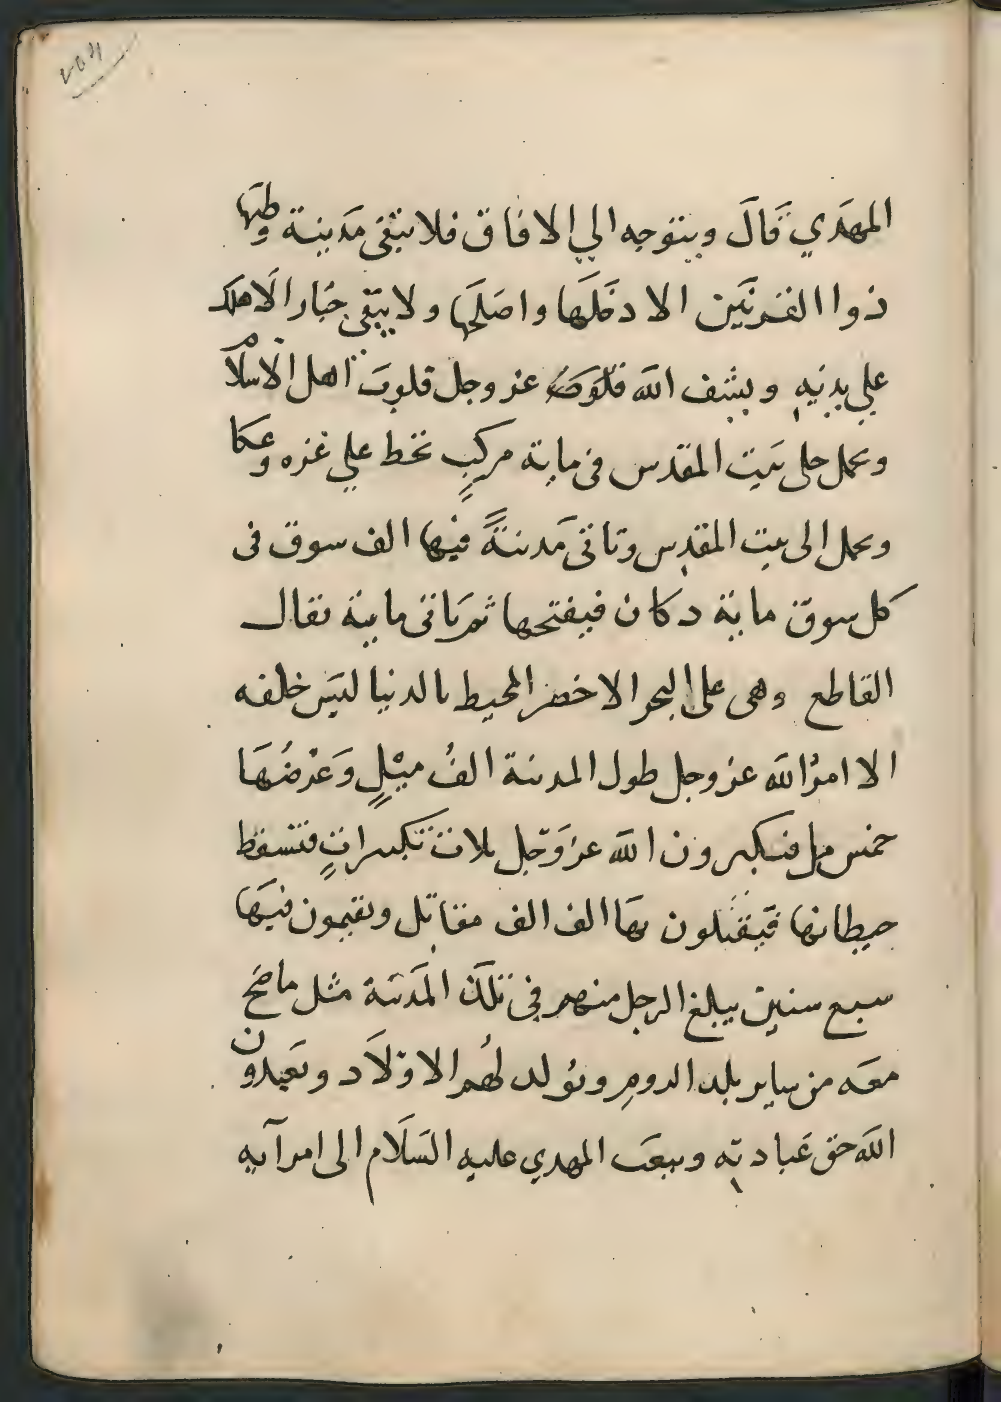 المهدي قال ويتوجه الي الافاق فلا تبقى مدينة وطيها
ذوا القرنين الا دخلها واصلحها ولا يبقى جبار الا هلك
علي يديه ويشف الله عز وجل قلوب اهل الاسلام
ويحمل حلى بيت المقدس فى ماية مركب تحط علي غزه وعكا
ويحمل الى بيت المقدس وتاتى مدينة فيها الف سوق فى
كل سوق ماية دكان فيفتحها ثم ياتى ماينة يقال
القاطع وهى على البحر الاخضر المحيط بالدنيا ليس خلفه
الا امر الله عز وجل طول المدينة الف ميل وعرضها
خمس ميل فيكبرون الله عز وجل ثلاث تكبيرات فتسقط
حيطانها فيقتلون بها الف الف مقاتل ويقيمون فيها
سبع سنين يبلغ الرجل منهم في تلك المدينة مثل ما صح
معه من ساير بلد الروم ويولد لهم الاولاد ويعبدون
الله حق عبادته ويبعث المهدي عليه السلام الى امرآيه